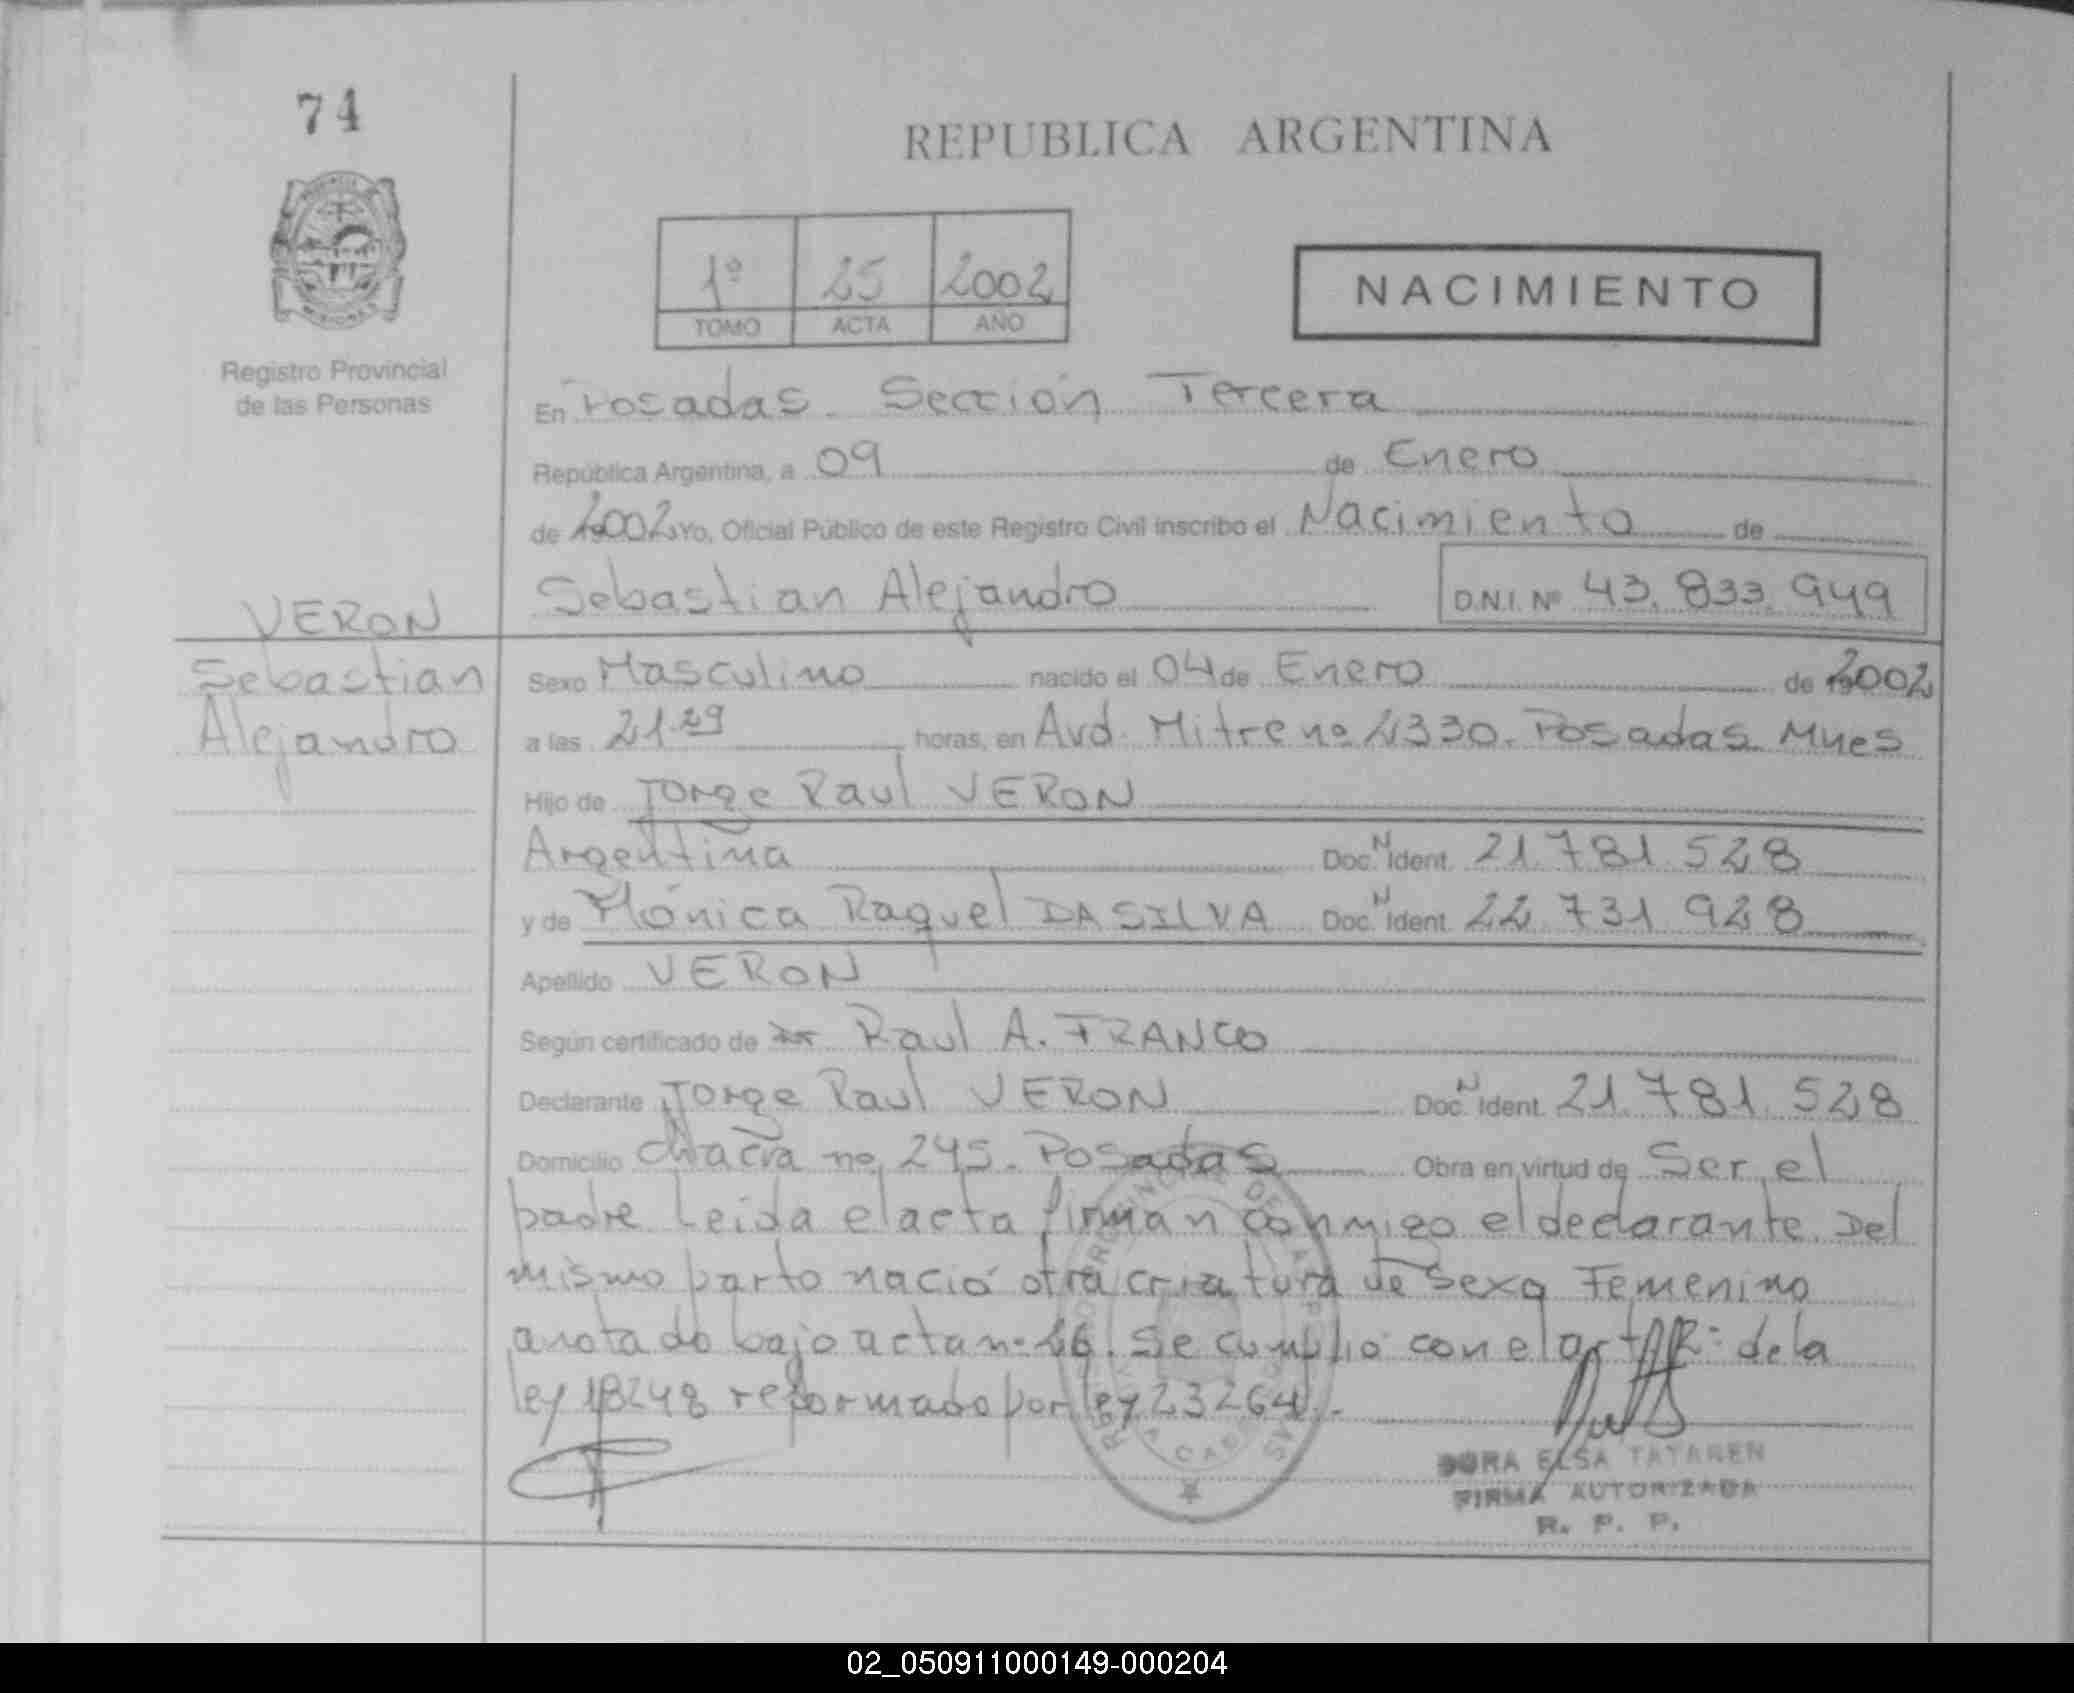 74
REPUBLICA ARGENTINA
1º 25 2002
TOMO ACTA AÑO
NACIMIENTO
Registro Provincial
de las Personas
En Posadas. Sección Tercera
República Argentina, a 09 de Enero
de 2002 Yo, Oficial Público de este Registro Civil inscribo el Nacimiento de
Sebastian Alejandro D.N.I. Nº 43.833.949
VERON
Sebastian
Alejandro
Sexo Masculino nacido el 04 de Enero de 2002
a las 21.29 horas, en Avd. Mitre nº 2330. Posadas. Mnes
Hijo de Jorge Raul VERON
Argentina Doc. N Ident. 21.781.528
y de Mónica Raquel DA SILVA Doc. N Ident. 22.731.928
Apellido VERON
Según certificado de Raul A. FRANCO
Declarante Jorge Raul VERON Doc. N Ident. 21.781.528
Domicilio chacra nº 245. Posadas Obra en virtud de Ser el
padre Leida el acta firman conmigo el declarante. Del
mismo parto nació otra criatura de Sexo Femenino
anotado bajo acta nº 26. Se cumplió con el art de la
ley 18248 reformado por ley 23264.
DORA ELSA TATAREN
FIRMA AUTORIZADA
R. P. P.
02_050911000149-000204